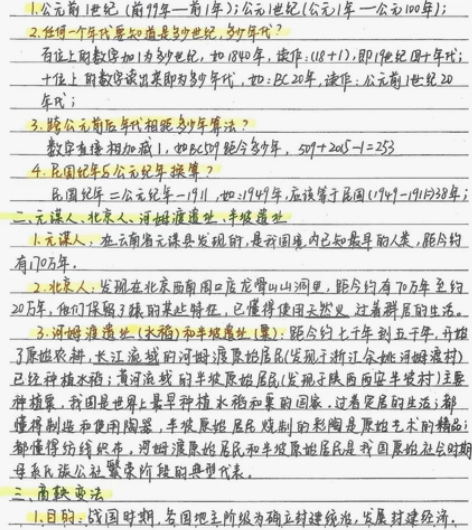 1.公元前1世纪（前99年—前1年）；公元1世纪（公元1年—公元100年）；
2.任何一个年代要知道是多少世纪，多少年代？
百位上的数字加1为多少世纪，如1840年，读作：(18+1)，即19世纪四十年代；
十位上的数字读出来即为多少年代，如：BC20年，读作：公元前1世纪20
年代；
3.跨公元前后年代相距多少年算法？
数字直接相加减1，如BC509距今多少年，509+2015-1=253
4.民国纪年与公元纪年换算？
民国纪年=公元纪年-1911，如：1949年，应该等于民国(1949-1911)38年；
二、元谋人、北京人、河姆渡遗址、半坡遗址
1.元谋人：在云南省元谋县发现的，是我国境内已知最早的人类，距今约
有170万年。
2.北京人：发现在北京西南周口店龙骨山山洞里，距今约有70万年至约
20万年，他们保留了猿的某些特征，已懂得使用天然火，过着群居的生活。
3.河姆渡遗址（水稻）和半坡遗址（粟）：距今约七千年到五千年，开始
了原始农耕，长江流域的河姆渡原始居民（发现于浙江余姚河姆渡村）
已经种植水稻；黄河流域的半坡原始居民（发现于陕西西安半坡村）主要
种植粟，我国是世界上最早种植水稻和粟的国家，过着定居的生活；都
懂得制造和使用陶器，半坡原始居民烧制的彩陶是原始艺术的精品；
都懂得纺线织布，河姆渡原始居民和半坡原始居民是我国原始社会时期
母系氏族公社繁荣阶段的典型代表。
三、商鞅变法
1.目的：战国时期，各国地主阶级为确立封建统治，发展封建经济，